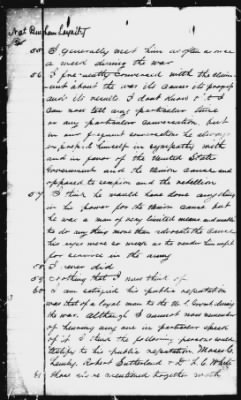 Nat Benham Loyalty
55. I generally meet him as often as once
a week during the war
56. I frequently conversed with the claim-
ant about the war its causes its progress
and its results I don't know that I
can now tell any particular time
or any particular conversation, but
in our frequent conversation he always
expressed himself in sympathy with
and in favor of the United States
Government and the Union cause and
opposed to secession and the rebellion
57. I think he would have done anything
in his power for the Union cause but
he was a man of very limited means and unable
to do anything more than advocate the cause
his eyes were so weak as to render him unfit
for service in the army
58. I never did
59. Nothing that I now think of
60. I am satisfied his public reputation
was that of a loyal man to the U S Govnt during
the war. Although I cannot now remember
of hearing any one in particular speak
of it. I think the following persons would
testify to his public reputation. Moses C.
Robert Sutherland & Dr L. C.
61. mentioned together with